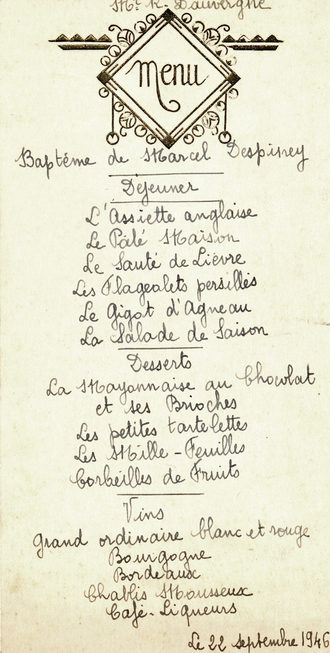 Mr R. Dauvergne
Menu
Baptême de Marcel Despiney
Déjeuner
L'Assiette anglaise
Le Pâté Maison
Le Sauté de Lièvre
Les Flageolets persillés
Le Gigot d'Agneau
La Salade de Saison
Desserts
La Mayonnaise au Chocolat
et ses Brioches
Les petites tartelettes
Les Mille-Feuilles
Corbeilles de Fruits
Vins
Grand ordinaire blanc et rouge
Bourgogne
Bordeaux
Chablis Mousseux
Café-Liqueurs
Le 22 septembre 1946